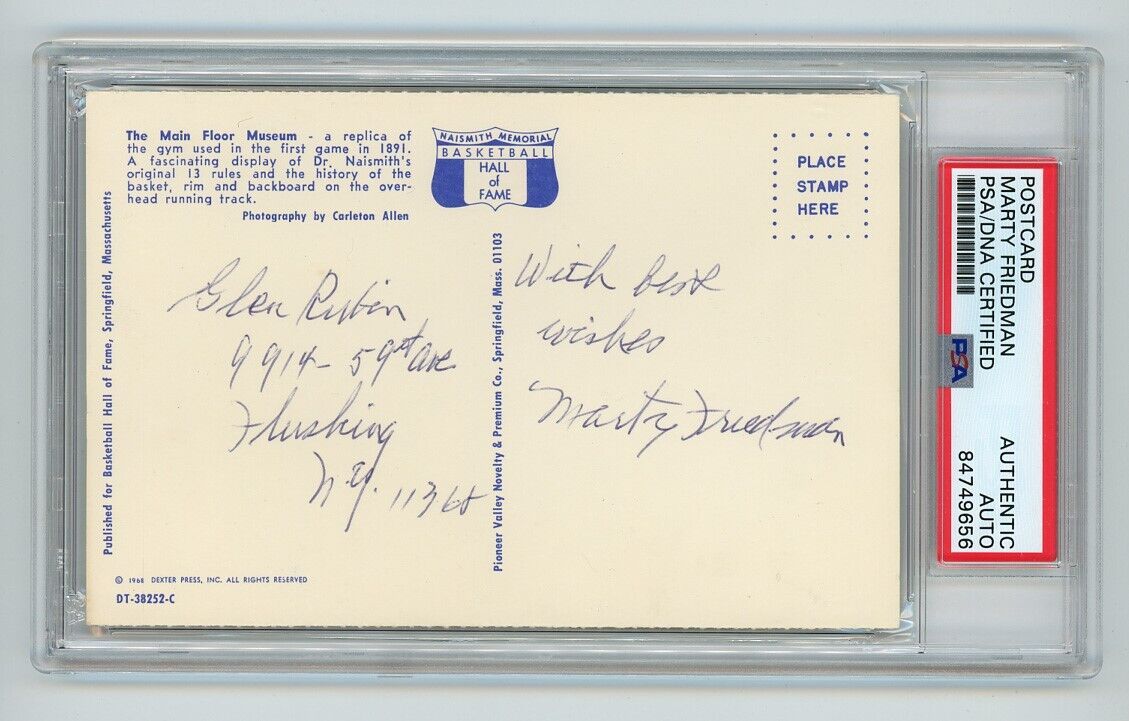 The Main Floor Museum - a replica of
the gym used in the first game in 1891.
A fascinating display of Dr. Naismith's
original 13 rules and the history of the
basket, rim and backboard on the over-
head running track.
Photography by Carleton Allen
NAISMITH MEMORIAL
BASKETBALL
HALL
of
FAME
PLACE
STAMP
HERE
Published for Basketball Hall of Fame, Springfield, Massachusetts
Glen Rubin
9914 - 59th ave
Flushing
N.Y. 11368
Pioneer Valley Novelty & Premium Co., Springfield, Mass. 01103
With best
wishes
Marty Friedman
© 1968 DEXTER PRESS, INC. ALL RIGHTS RESERVED
DT-38252-C
POSTCARD
MARTY FRIEDMAN
PSA/DNA CERTIFIED
PSA
AUTHENTIC
AUTO
84749656